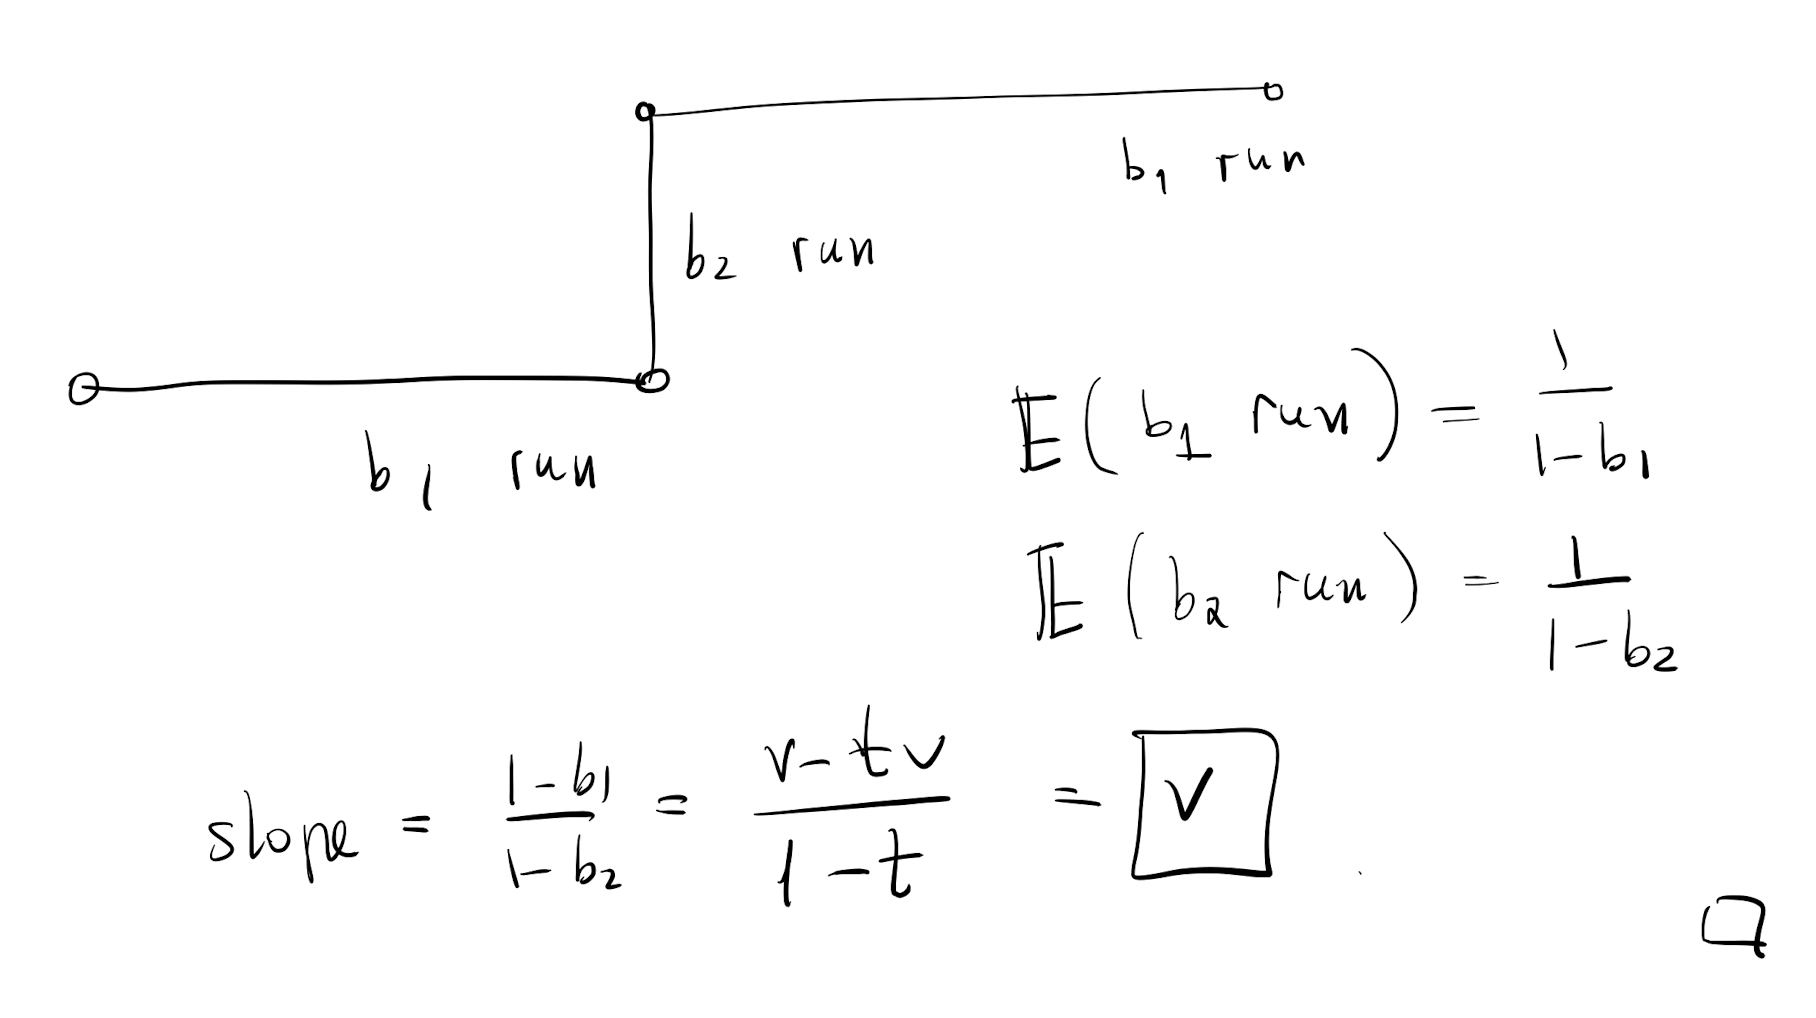 b₁ run
b₂ run
b₁ run
𝔼(b₁ run) = 1/(1-b₁)
𝔼(b₂ run) = 1/(1-b₂)
slope = (1-b₁)/(1-b₂) = (v-tv)/(1-t) = v